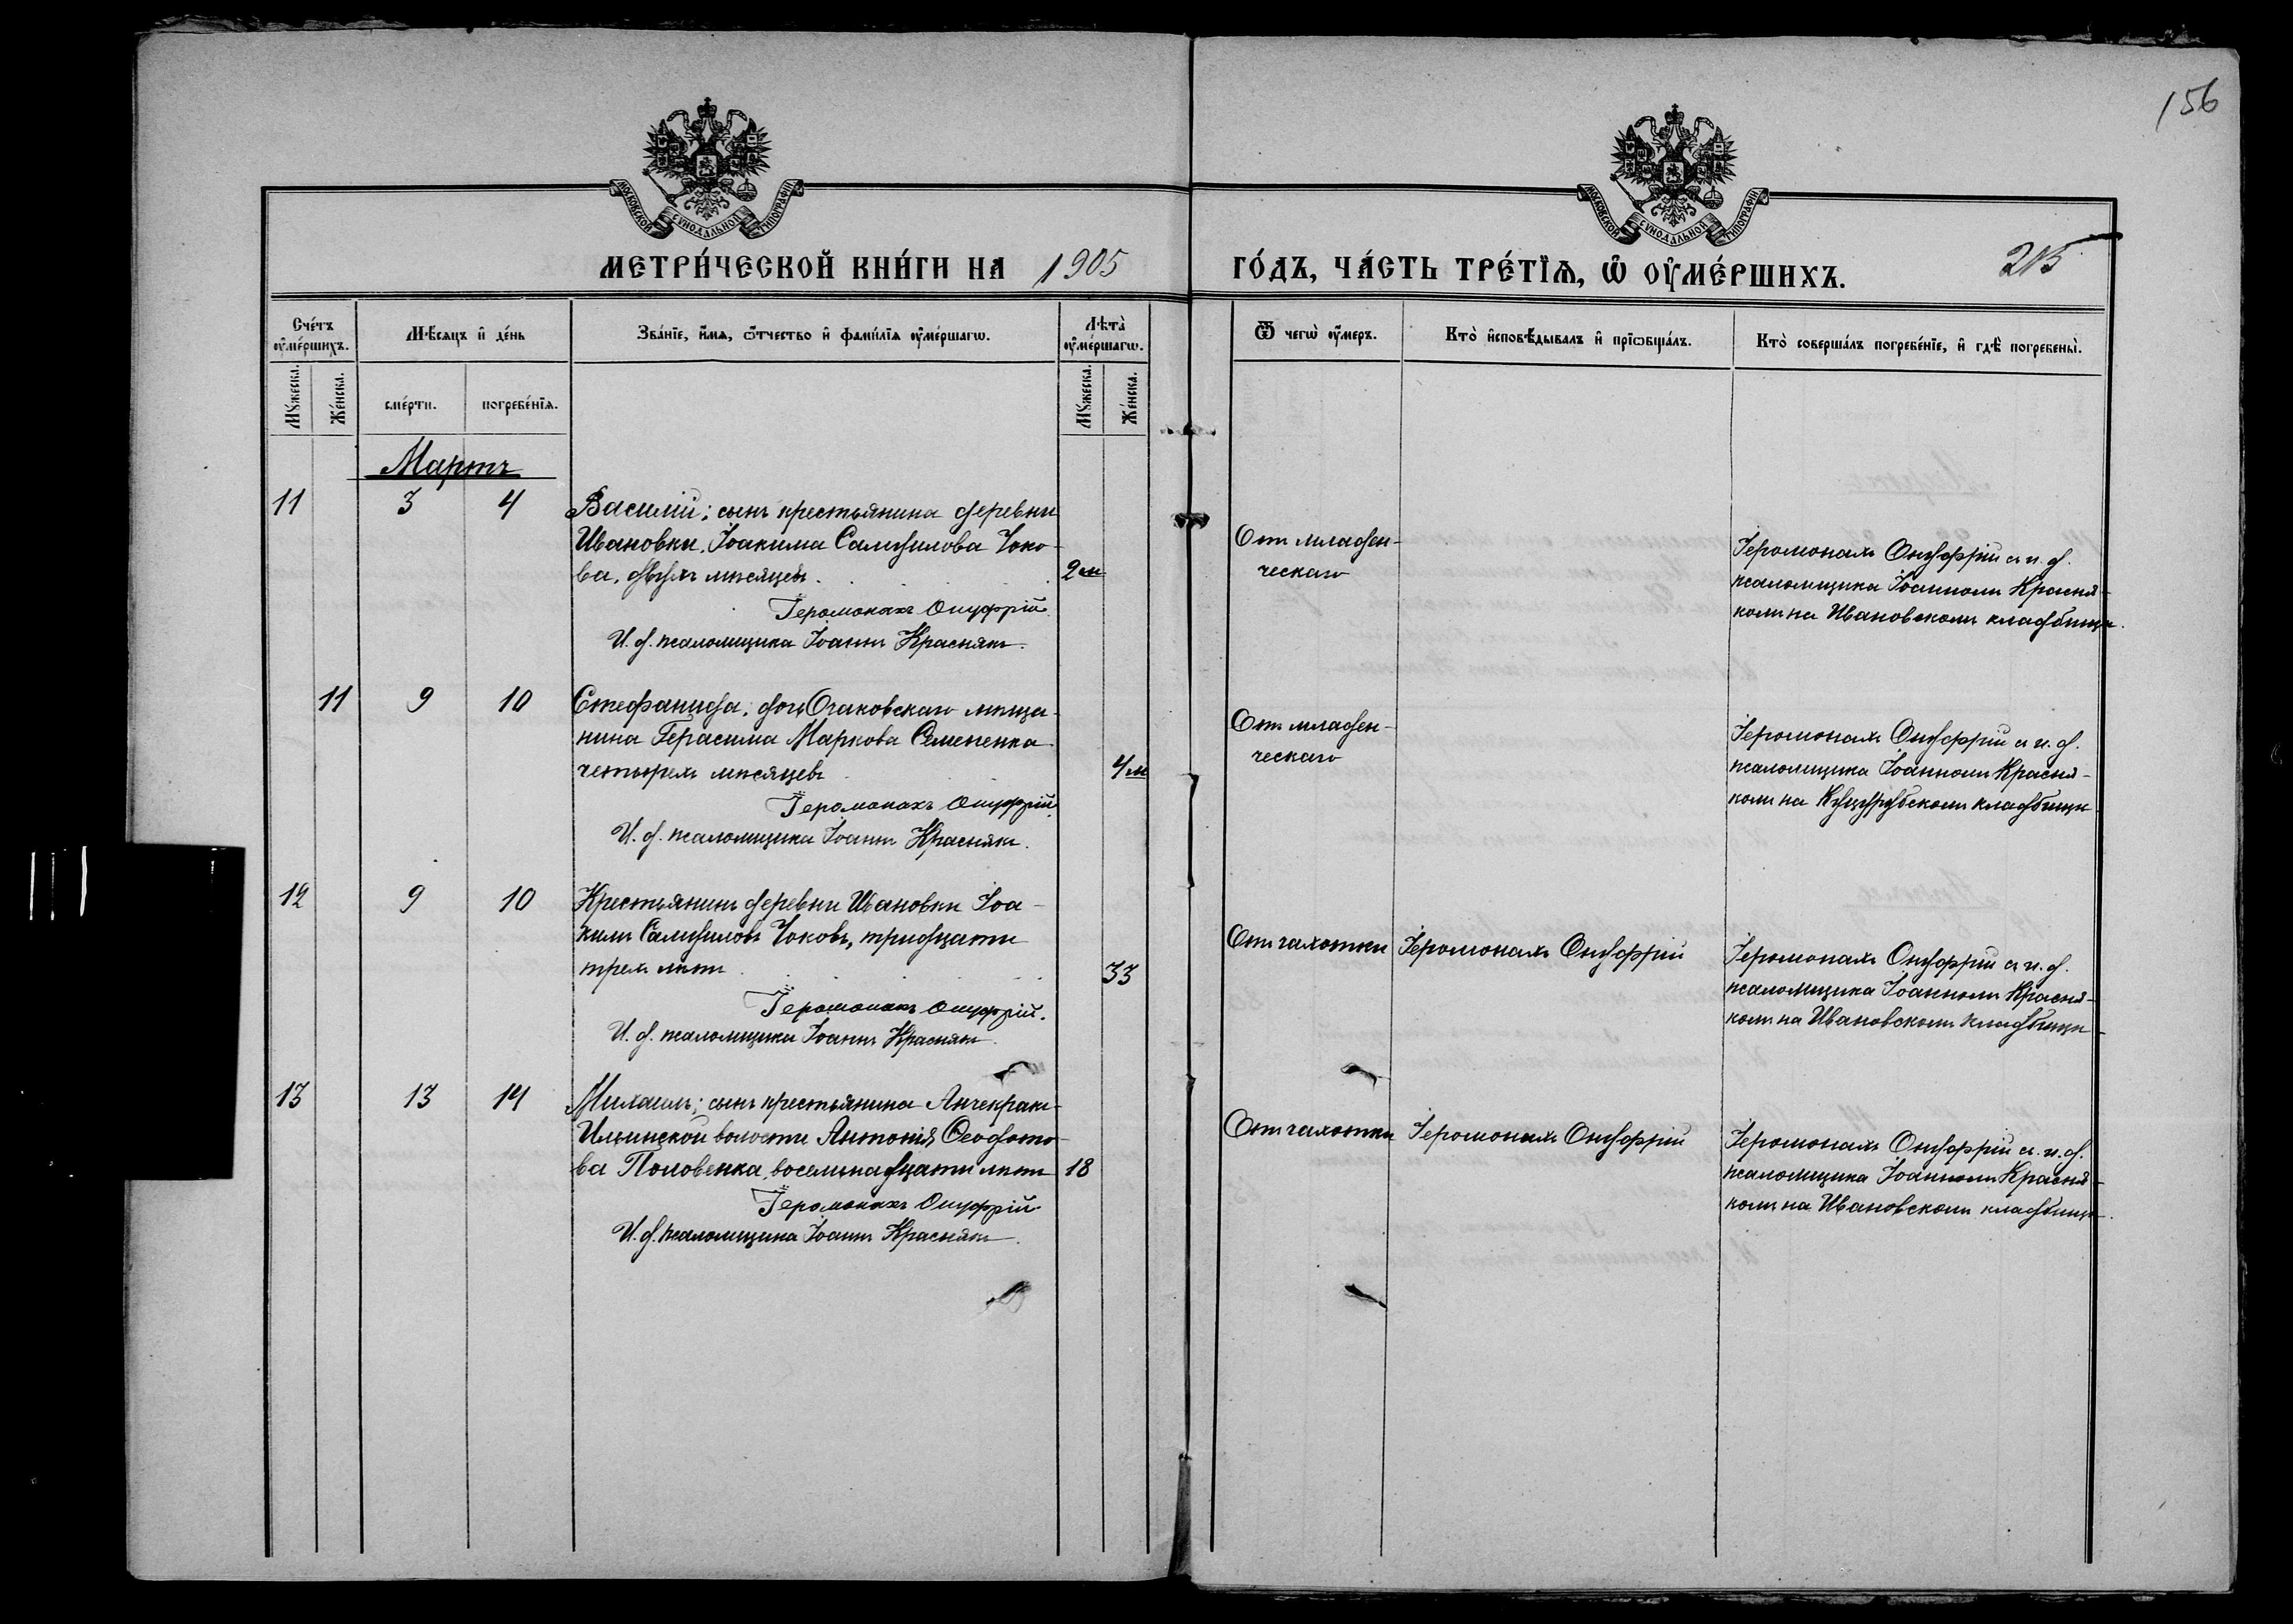 156
МОСКОВСКОЙ СУНОДАЛЬНОЙ ТИПОГРАФІИ
МОСКОВСКОЙ СУНОДАЛЬНОЙ ТИПОГРАФІИ
МЕТРИ́ЧЕСКОЙ КНИ́ГИ НА 1905
ГО́ДЪ, ЧА́СТЬ ТРЕ́ТІѦ, Ѡ҆ ОУ҆МЕ́РШИХЪ.
215
Сче́тъ оу҆ме́ршихъ.
Мѣ́сяцъ и҆ де́нь
Зва́нїе, и҆́мѧ, ѻ҆́тчество и҆ фами́лїѧ оу҆ме́ршагѡ.
Лѣта̀ оу҆ме́ршагѡ.
Ѿ чегѡ̀ оу҆́меръ.
Кто̀ и҆сповѣ́дывалъ и҆ прїѡбща́лъ.
Кто̀ соверша́лъ погребе́нїе, и҆ гдѣ̀ погребены̀.
Мꙋ́жеска.
Же́нска.
сме́рти.
погребе́нїѧ.
Мꙋ́жеска.
Же́нска.
Мартъ
11 3 4 Василій; сынъ крестьянина деревни
Ивановки, Іоакима Самуилова Чоко-
ва, двухъ мѣсяцевъ. 2 м
Іеромонахъ Онуфрій.
И. д. псаломщика Іоаннъ Краснякъ.
Отъ младен-
ческаго
Іеромонахъ Онуфрій съ и. д.
псаломщика Іоанномъ Красня-
комъ на Ивановскомъ кладбищѣ.
11 9 10 Стефанида, дочь Очаковскаго мѣща-
нина Герасима Маркова Семененка
четырехъ мѣсяцевъ 4 м
Іеромонахъ Онуфрій.
И. д. псаломщика Іоаннъ Краснякъ.
Отъ младен-
ческаго
Іеромонахъ Онуфрій съ и. д.
псаломщика Іоанномъ Красня-
комъ на Куцурубскомъ кладбищѣ
12 9 10 Крестьянинъ деревни Ивановки Іоа-
кимъ Самуиловъ Чоковъ, тридцати
трехъ лѣтъ 33
Іеромонахъ Онуфрій.
И. д. псаломщика Іоаннъ Краснякъ.
Отъ чахотки Іеромонахъ Онуфрій
Іеромонахъ Онуфрій съ и. д.
псаломщика Іоанномъ Красня-
комъ на Ивановскомъ кладбищѣ
13 13 14 Михаилъ; сынъ крестьянина Анчекрак-
Ильинской волости Антонія Ѳеодото-
ва Половенка, восемнадцати лѣтъ 18
Іеромонахъ Онуфрій
И. д. псаломщика Іоаннъ Краснякъ.
Отъ чахотки Іеромонахъ Онуфрій
Іеромонахъ Онуфрій съ и. д.
псаломщика Іоанномъ Красня-
комъ на Ивановскомъ кладбищѣ.